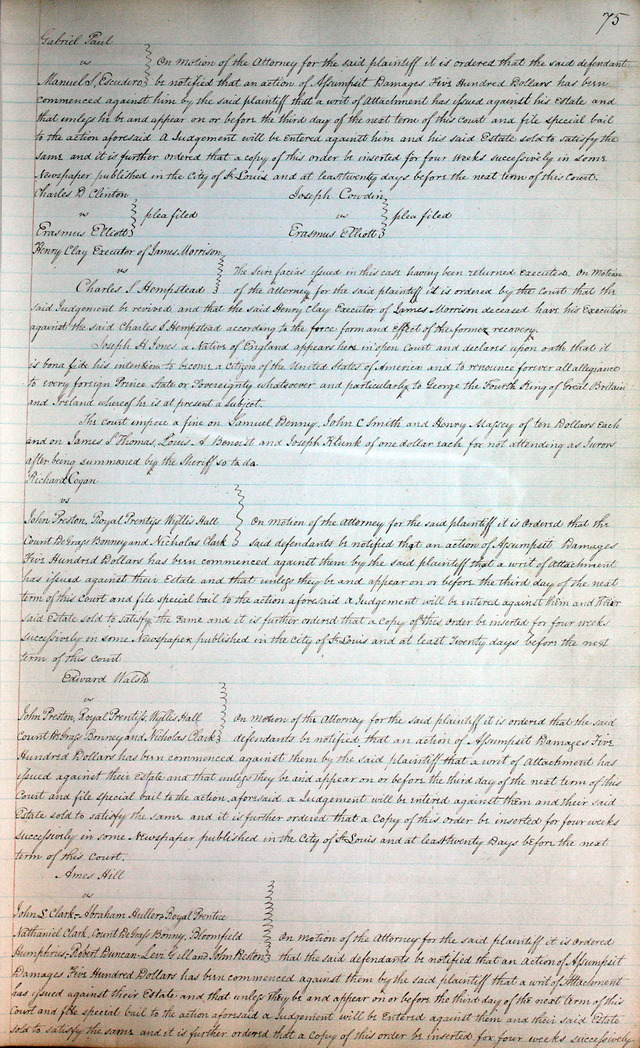 75
Gabriel Paul
vs
Manuel S, Escudero
On motion of the Attorney for the said plaintiff it is ordered that the said defendant
be notified that an action of Assumpsit Damages Five Hundred Dollars has been
commenced against him by the said plaintiff that a writ of Attachment has issued against his Estate and
that unless he be and appear on or before the third day of the next term of this Court and file special bail
to the action aforesaid A Judgement will be Entered against him and his said Estate sold to satisfy the
same and it is further ordered that a copy of this order be inserted for four weeks successively in some
Newspaper published in the City of St Louis and at least twenty days before the next term of this Court.
Charles D Clinton
vs
Erasmus Elliott
plea filed
Joseph Cowdin
vs
Erasmus Elliott
plea filed
Henry Clay Executor of James Morrison
vs
Charles S Hempstead
The Scire facias issued in this case having been returned executed. On Motion
of the Attorney for the said plaintiff it is ordered by the Court that the
said Judgement be revived and that the said Henry Clay Executor of James Morrison deceased have his Execution
against the said Charles S Hempstead according to the force form and Effect of the former recovery.
Joseph H Jones a Native of England appears here in open Court and declares upon oath that it
is bona fide his intention to become a Citizen of the United States of America and to renounce forever all allegiance
to every foreign Prince State or Sovereignty whatsoever and particularly to George the Fourth King of Great Britain
and Ireland whereof he is at present a Subject.
The Court impose a fine on Samuel Denny, John C Smith and Henry Massey of ten Dollars Each
and on James S Thomas, Louis A Benoist and Joseph Klunk of one dollar Each for not attending as Jurors
after being summoned by the Sheriff so to do.
Richard Cogan
vs
John Preston, Royal Prentiss, Wyllis Hall
Count De Grass Bonney and Nicholas Clark
On motion of the Attorney for the said plaintiff it is Ordered that the
said defendants be notified that an action of Assumpsit Damages
Five Hundred Dollars has been commenced against them by the said plaintiff that a writ of Attachment
has issued against their Estate and that unless they be and appear on or before the third day of the next
term of this Court and file special bail to the action aforesaid a Judgement will be entered against them and their
said Estate sold to satisfy the same and it is further ordered that a copy of this order be inserted for four weeks
successively in some Newspaper published in the City of St Louis and at least Twenty days before the next
term of this court
Edward Walsh
vs
John Preston, Royal Prentiss, Wyllis Hall
Count De Grass Bonney and Nicholas Clark
On motion of the Attorney for the said plaintiff it is ordered that the said
defendants be notified that an action of Assumpsit Damages Five
Hundred Dollars has been commenced against them by the said plaintiff that a writ of Attachment has
issued against their Estate and that unless they be and appear on or before the third day of the next term of this
Court and file special bail to the action aforesaid a Judgement will be entered against them and their said
Estate sold to satisfy the same and it is further ordered that a Copy of this order be inserted for four weeks
successively in some Newspaper published in the City of St Louis and at least twenty Days before the next
term of this Court.
Ames Hill
vs
John S. Clark, Abraham Huller, Royal Prentice
Nathaniel Clark, Count De Grass Bonny, Bloomfield
Humphries, Robert Duncan, Levi Gill and John Peston
On motion of the Attorney for the said plaintiff it is Ordered
that the said defendants be notified that an Action of Assumpsit
Damages Five Hundred Dollars has been commenced against them by the said plaintiff that a writ of Attachment
has issued against their Estate and that unless they be and appear on or before the third day of the next term of this
Court and file special bail to the action aforesaid a Judgement will be Entered against them and their said Estate
sold to satisfy the same and it is further ordered that a Copy of this order be inserted for four weeks successively